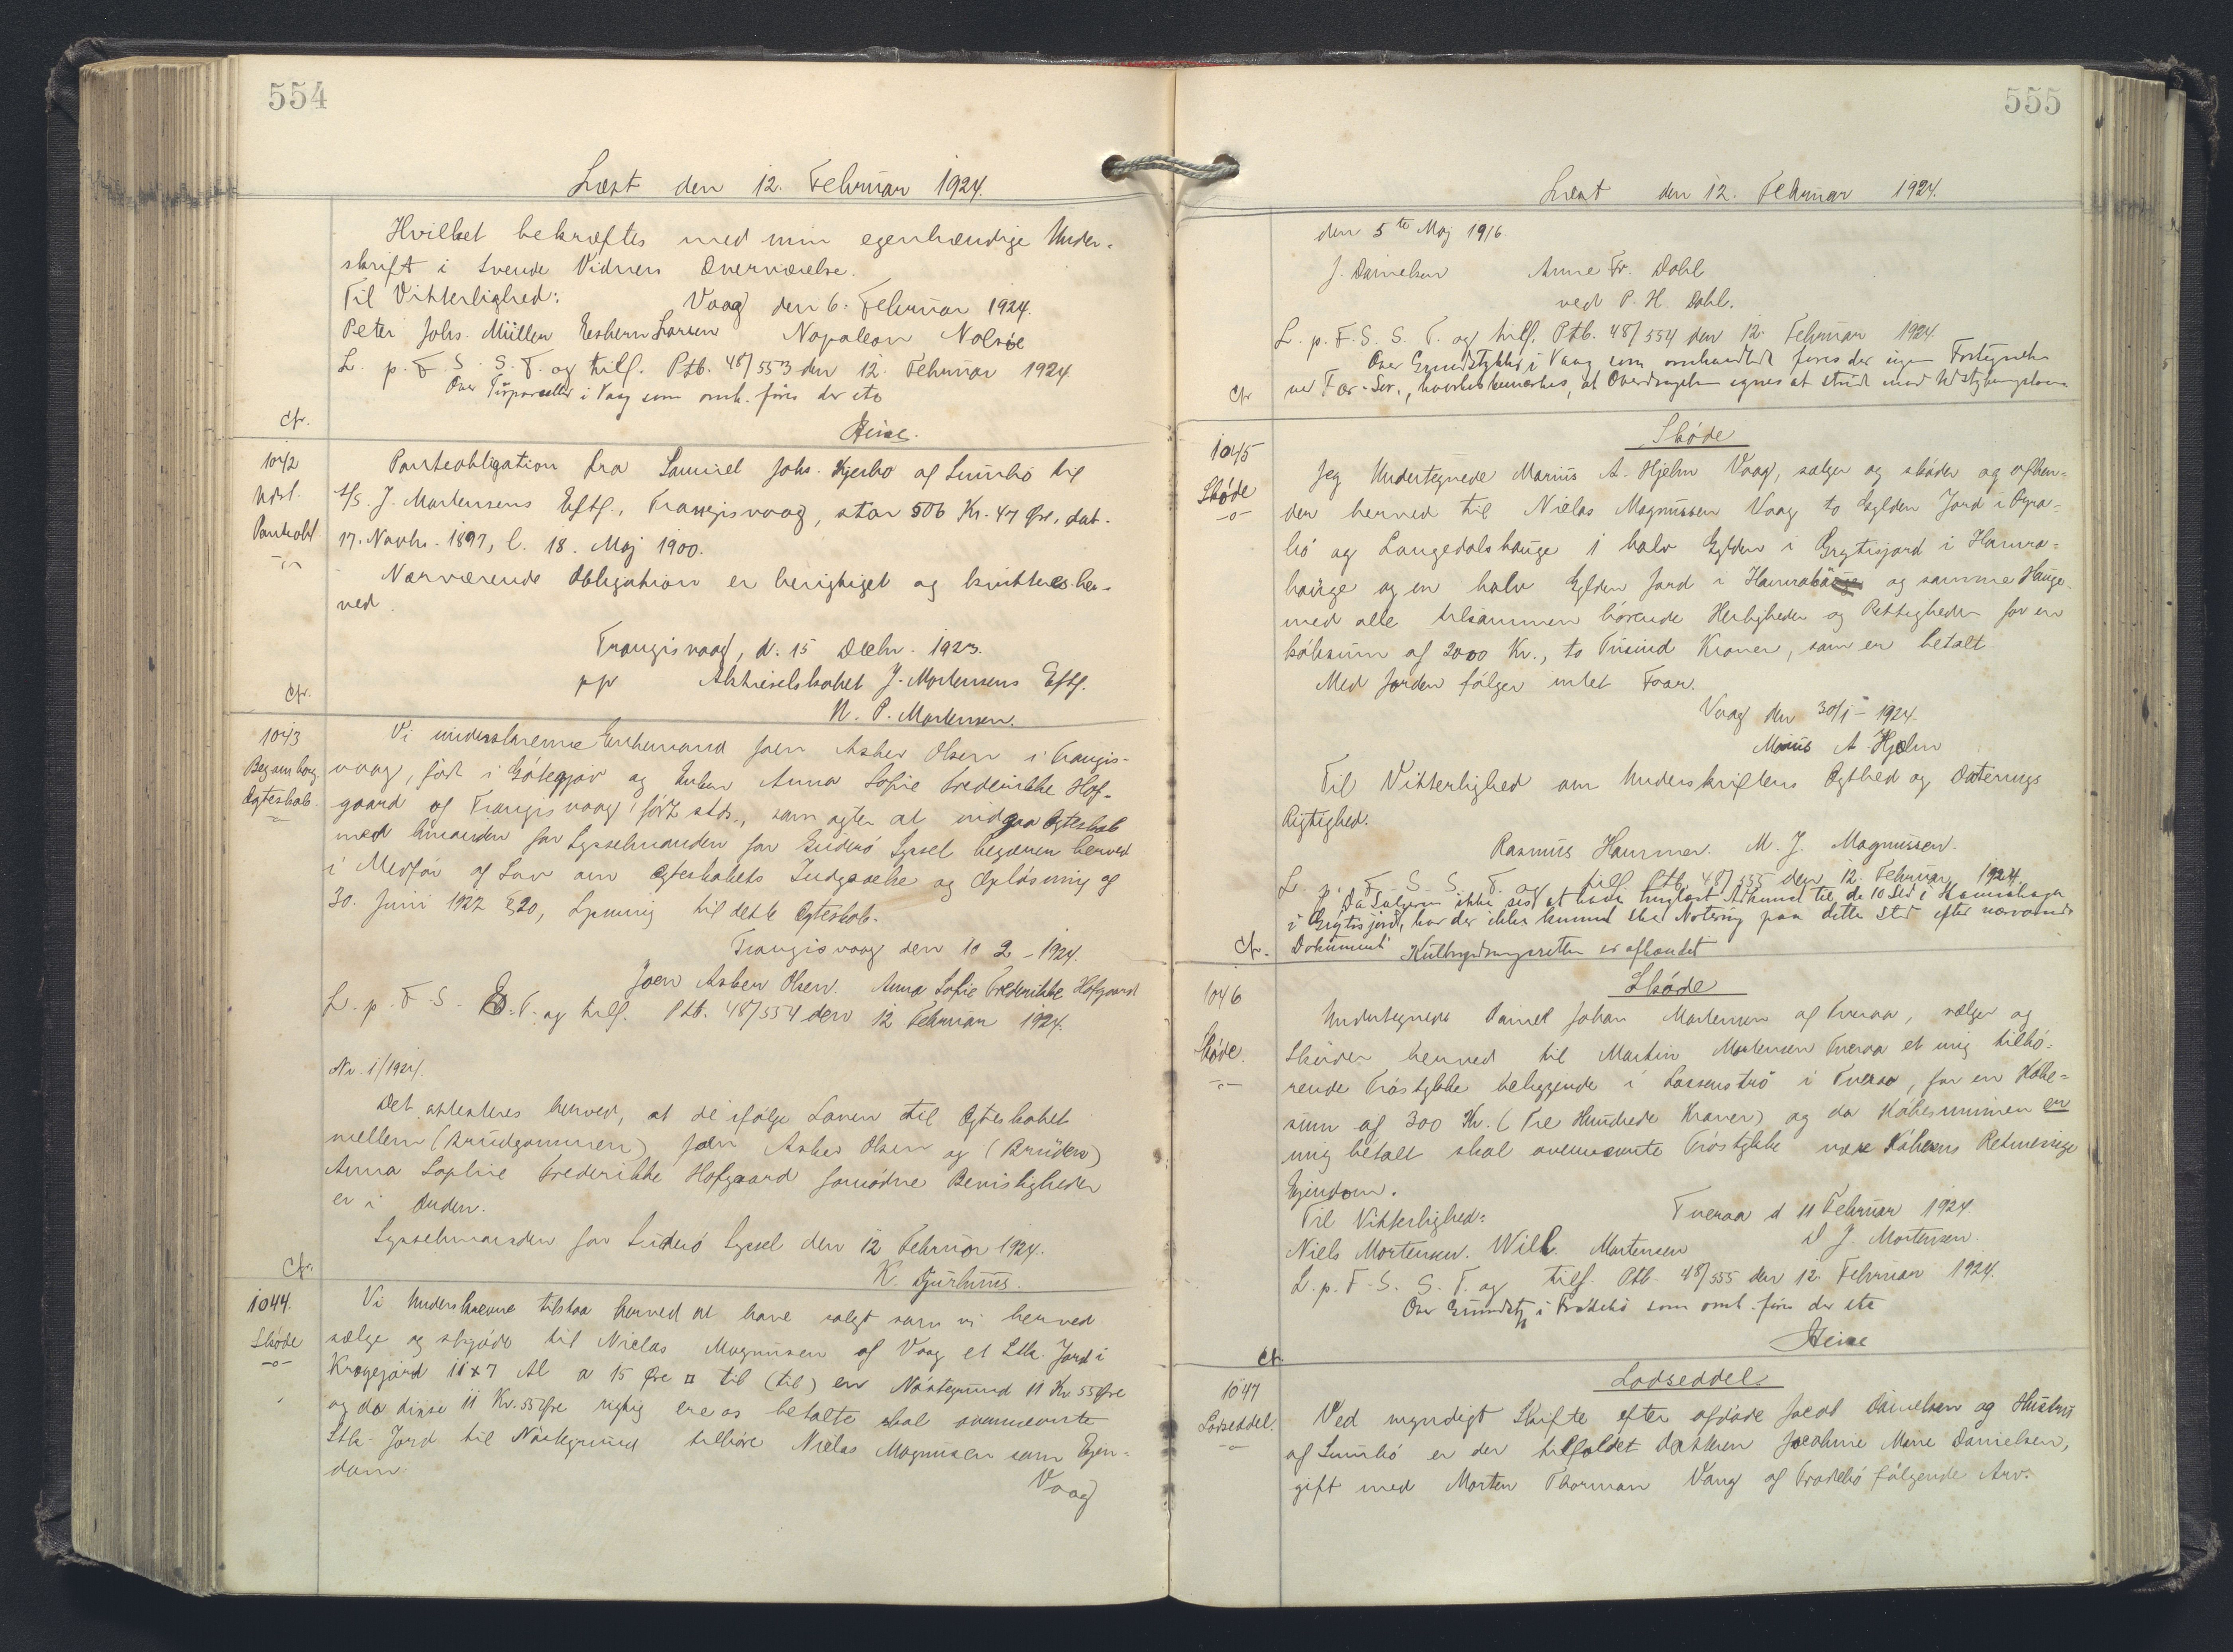 554
Læst den 12. Februar 1924.
Hvilket bekræftes med min egenhændige Under-
skrift i tvende Vidners Overværelse.
Til Vitterlighed: Vaag den 6. Februar 1924.
Peter Johs. Müller Esbern Larsen Napoleon Nolsøe
L. p. F. S. S. T. og tilf. Ptb. 48/553 den 12. Februar 1924
Over Törparceller i Vaag som omh. föres der ete
Heise.
Cfr.
1042
Udsl.
Panteobl
Panteobligation fra Samuel Johs. Kjærbo af Sumbö til
A/S. J. Mortensens Eftf., Trangisvaag, stor 506 Kr. 47 Øre, dat.
17. Novbr. 1897, l. 18. Maj 1900.
Nærværende Obligation er berigtiget og kvitteres her-
ved.
Trangisvaag, d. 15 Decbr. 1923.
pp Aktieselskabet J. Mortensens Eftf.
N. P. Mortensen.
Cfr.
1043
Beg. om borg.
Ægteskab
Vi underskrevne Enkemand Joen Asker Olsen i Trangis-
vaag, födt i Götegjov og Enken Anna Sofie Frederikke Hof-
gaard af Trangisvaag, födt stds., som agter at indgaa Ægteskab
med hinanden for Sysselmanden for Suderö Syssel begærer herved
i Medför af Lov om Ægteskabets Indgaaelse og Oplösning af
30. Juni 1922 § 20, Lysning til dette Ægteskab.
Trangisvaag den 10 2 - 1924.
Joen Asker Olsen. Anna Sofie Frederikke Hofgaard
L. p. F. S. S. T. og tilf. Ptb. 48/554 den 12 Februar 1924.
Nr. 1/1924.
Det attesteres herved, at de ifölge Loven til Ægteskabet
mellem (Brudgommen) Joen Asker Olsen og (Bruden)
Anna Sophie Frederikke Hofgaard fornödne Bevisligheder
er i Orden.
Sysselmanden for Suderö Syssel den 12 Februar 1924.
K. Djurhuus.
Cfr.
1044.
Sköde
Vi Underskrevne tilstaa herved at have solgt som vi herved
sælge og skjøde til Nielas Magnusen af Vaag et Stk. Jord i
Krogejord 11 x 7 Al a 15 Øre ¤ til (til) en Nöstegrund 11 Kr. 55 Øre
og da disse 11 Kr. 55 Øre rigtig ere os betalte skal ovennævnte
Stk. Jord til Nöstegrund tilhöre Nielas Magnusen som Ejen-
dom.
Vaag
555
Læst den 12. Februar 1924.
den 5te Maj 1916.
J. Danielsen Anne Fr. Dahl
ved P. H. Dahl.
L. p. F. S. S. T. og tilf. Ptb. 48/554 den 12. Februar 1924.
Over Grundstykker i Vaag som omhandlet föres der ingen Fortegnelse
ved Fær. Sor., hvorhos bemærkes, at Overdragelsen synes at stride imod Udstykningsloven
Cfr
1045
Sköde
Sköde
Jeg Undertegnede Marius A. Hjelm Vaag, sælger og sköder og afhen-
der herved til Nielas Magnussen Vaag to Gylden Jord i Ögra-
bö og Langedalshauge 1 halv Gylden i Grytisjord i Hamra-
hauge og en halv Gylden Jord i Hamrabö og samme Hauge.
med alle tilsammen hörende Herligheder og Rettigheder for en
köbesum af 2000 Kr., to Tusind Kroner, som er betalt
Med Jorden fölger intet Faar.
Vaag den 30/1 - 1924.
Marius A Hjelm
Til Vitterlighed om Underskriftens Ægthed og Daterings
Rigtighed.
Rasmus Hammer. M. J. Magnussen.
L. p. F. S. S. T. og tilf. Ptb. 48/555 den 12. Februar 1924.
Da Sælgeren ikke ses at have tinglæst Adkomst til de 10 Skd i Hamrahauge
i Grytisjord, har der ikke kunnet ske Notering paa dette Sted efter nærværende
Dokument. Kulbrydningsretten er afhændet
Cfr.
1046
Sköde.
Sköde
Undertegnede Daniel Johan Mortensen af Tveraa, sælger og
Sköder herved til Martin Mortensen Tveraa et mig tilhö-
rende Tröstykke beliggende i Lassenströ i Tveraa, for en Köbe-
sum af 300 Kr. (Tre Hundrede Kroner) og da Köbesummen er
mig betalt skal ovennævnte Tröstykke være Köberens Retmessige
Ejendom.
Til Vitterlighed: Tveraa d 11 Februar 1924
Niels Mortensen. Will. Mortensen D J. Mortensen.
L. p. F. S. S. T. og tilf. Ptb 48/555 den 12. Februar 1924.
Over Grundstk i Frodebö som omh. föres der ete
Heise
Cfr.
1047
Lodseddel.
Lodseddel.
Ved myndigt Skifte efter afdöde Jacob Danielsen og Hustru
af Sumbö er der tilfaldet Datteren Jacobine Marie Danielsen,
gift med Morten Thorman Vang af Frodebö fölgende Arv.